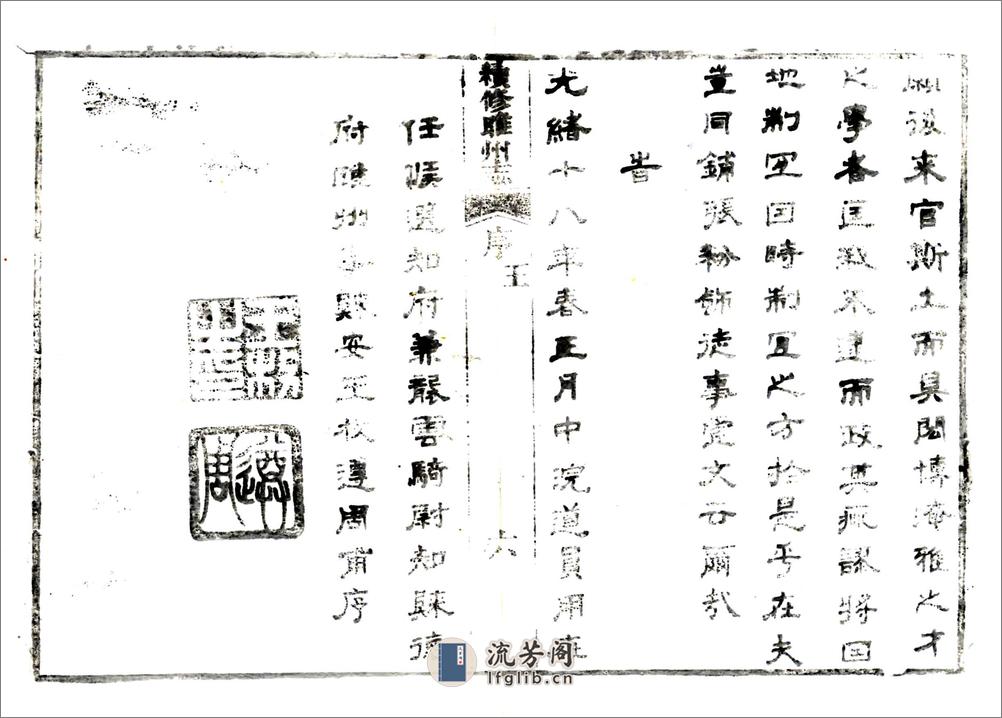 願後來官斯土而具閎博淹雅之才
之學者匡我不逮而政其疵謬將因
地制宜因時制宜之方於是乎在夫
豈同鋪張粉飾徒事虛文云爾哉
旹
光緒十八年春正月中浣道員用在
任候選知府兼襲雲騎尉知歸德
府睢州事安王枚遵周甫序
遵周
續修睢州志
序
王
六
流芳阁
lfglib.cn